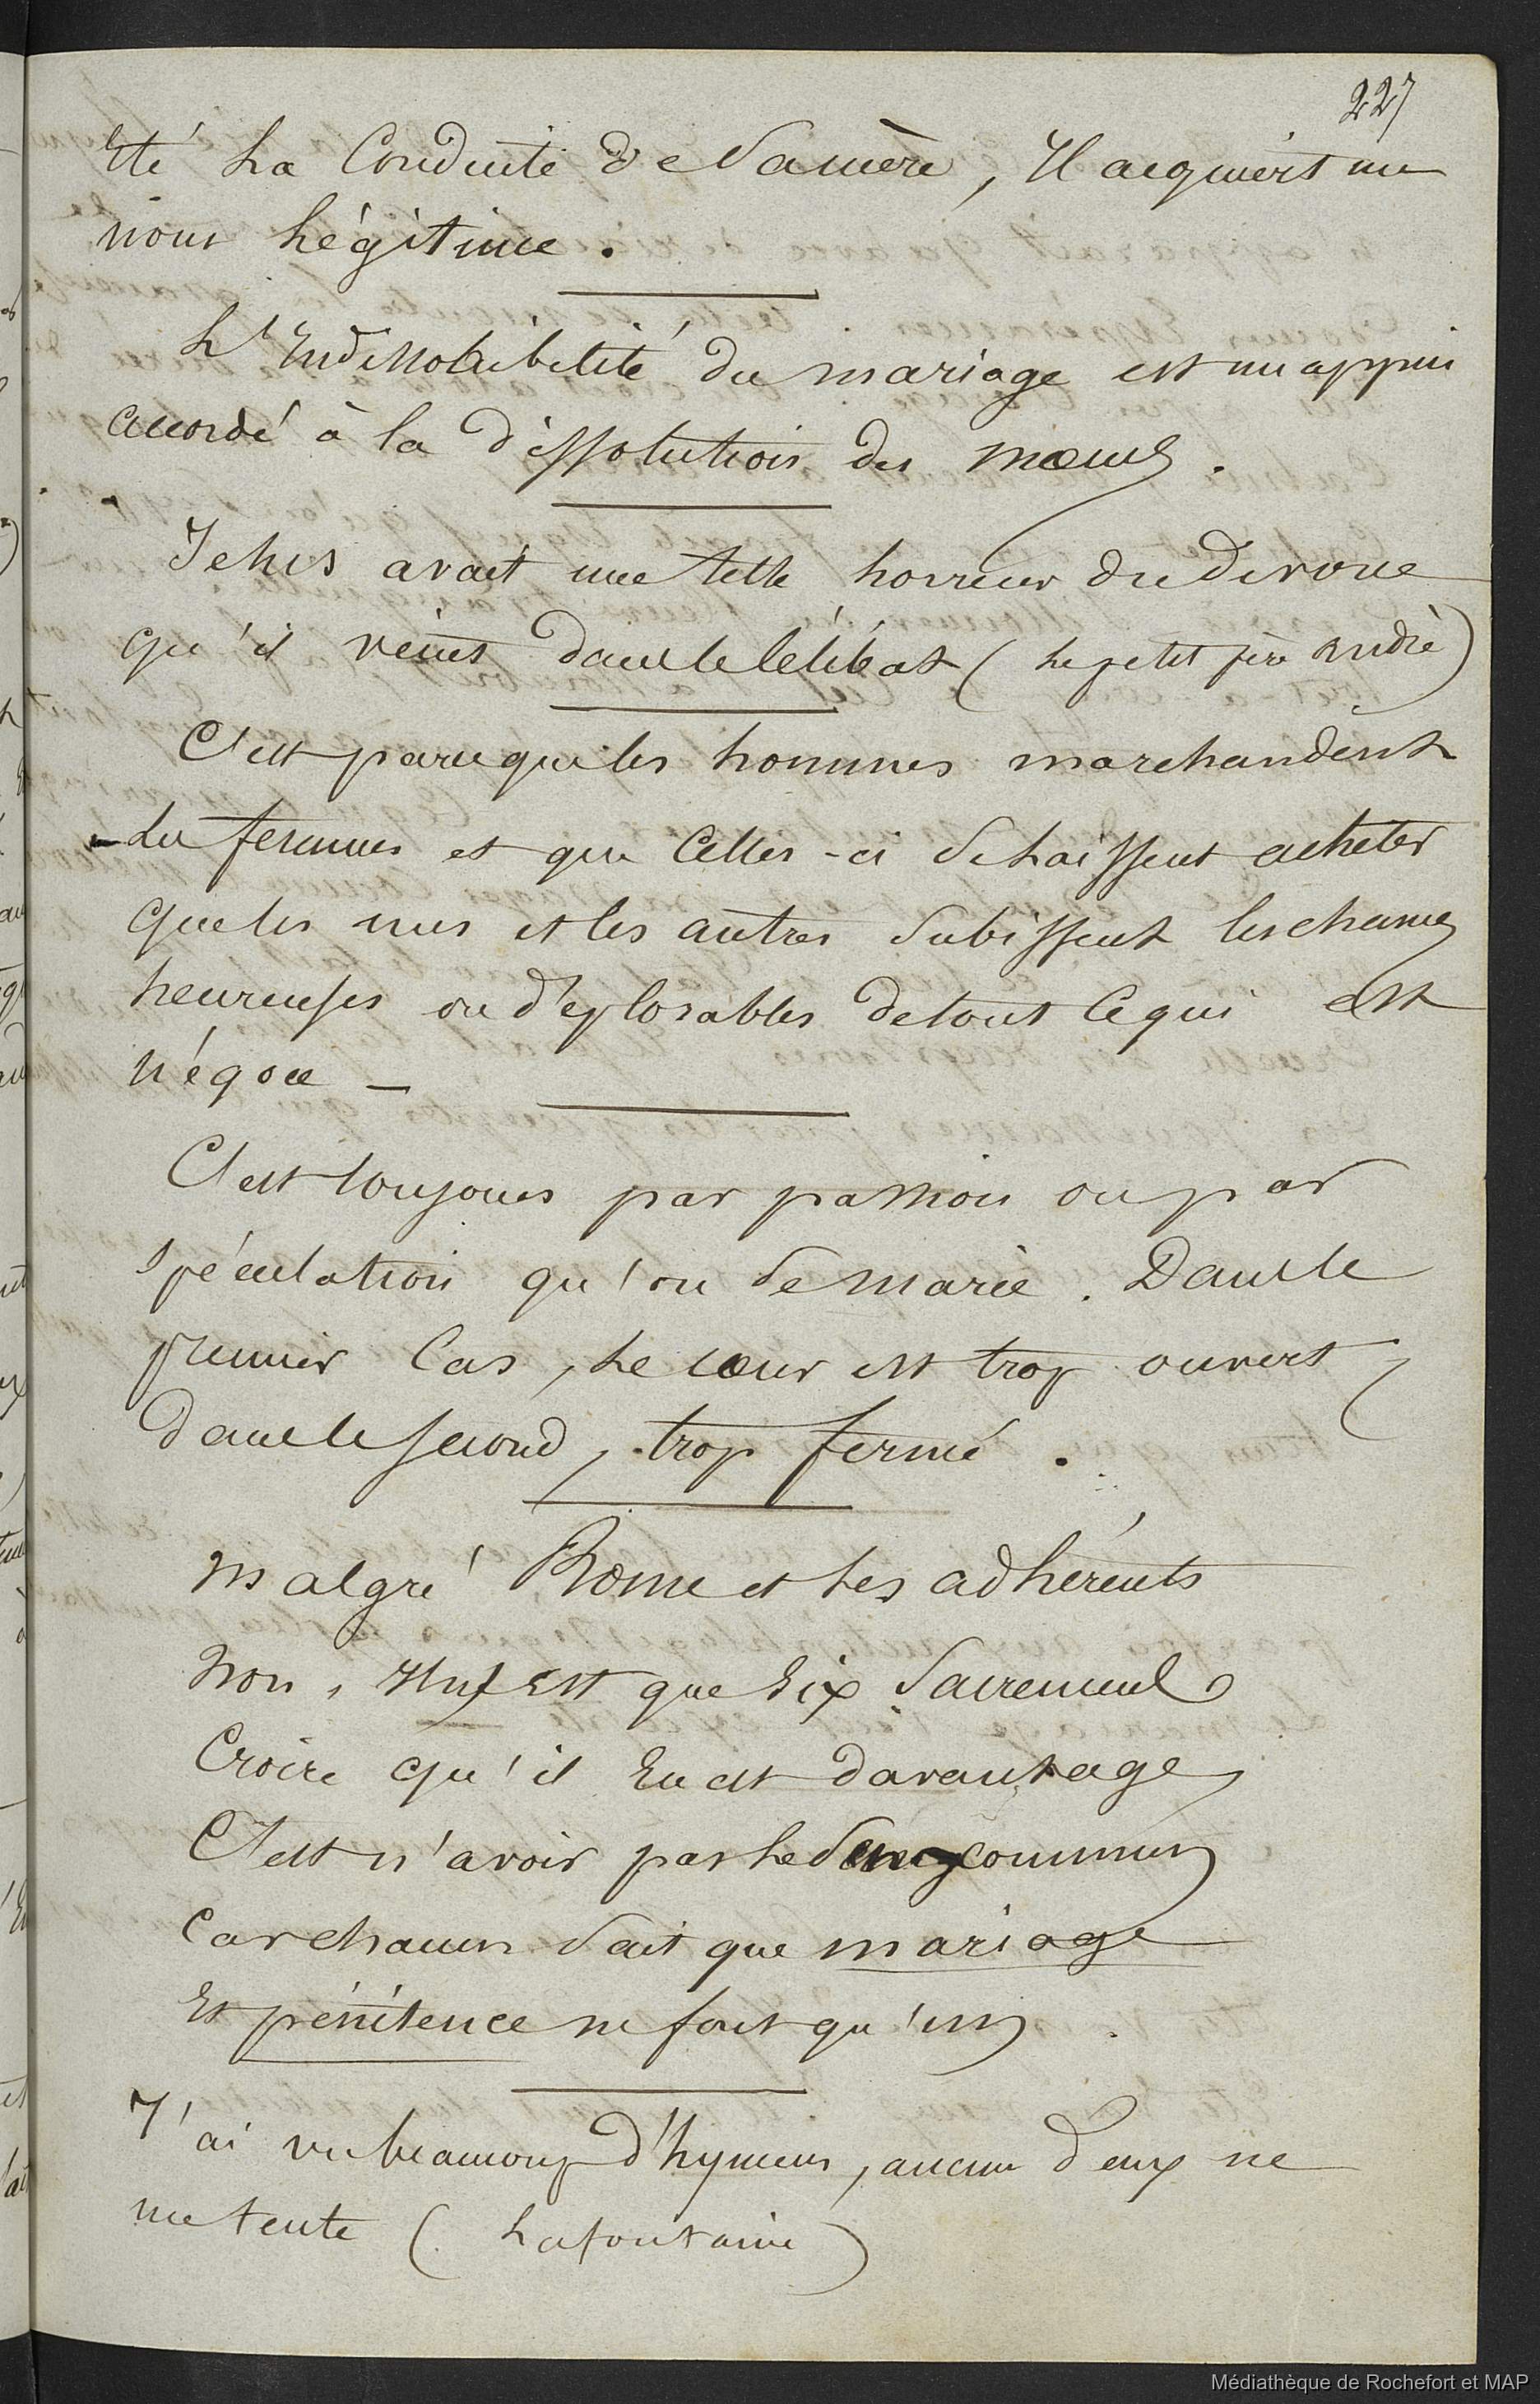 227
Eté La Conduite de Sa mère, Il acquiert un
nom Légitime.
L'Indissolubilité du mariage est un appui
accordé à la dissolution des mœurs.
Jésus avait une telle horreur du Divorce
qu'il vécut dans le Célibat (Le petit père André)
C'est parce que les hommes marchandent
les femmes et que Celles-ci Se Laissent acheter
que les uns et les autres Subissent les chances
heureuses ou déplorables de tout Ce qui est
négoce —
C'est toujours par passion ou par
Spéculation qu'on Se marie. Dans le
premier Cas, Le cœur est trop ouvert,
Dans le second, trop fermé.
Malgré Rome et Ses adhérents
Non, Il n'est que Six Sacrements
Croire qu'il En est davantage,
C'est n'avoir pas Le Sens commun
Car chacun Sait que mariage
Et pénitence ne font qu'un.
J'ai vu beaucoup d'hymens, aucun d'eux ne
me tente (Lafontaine)
Médiathèque de Rochefort et MAP